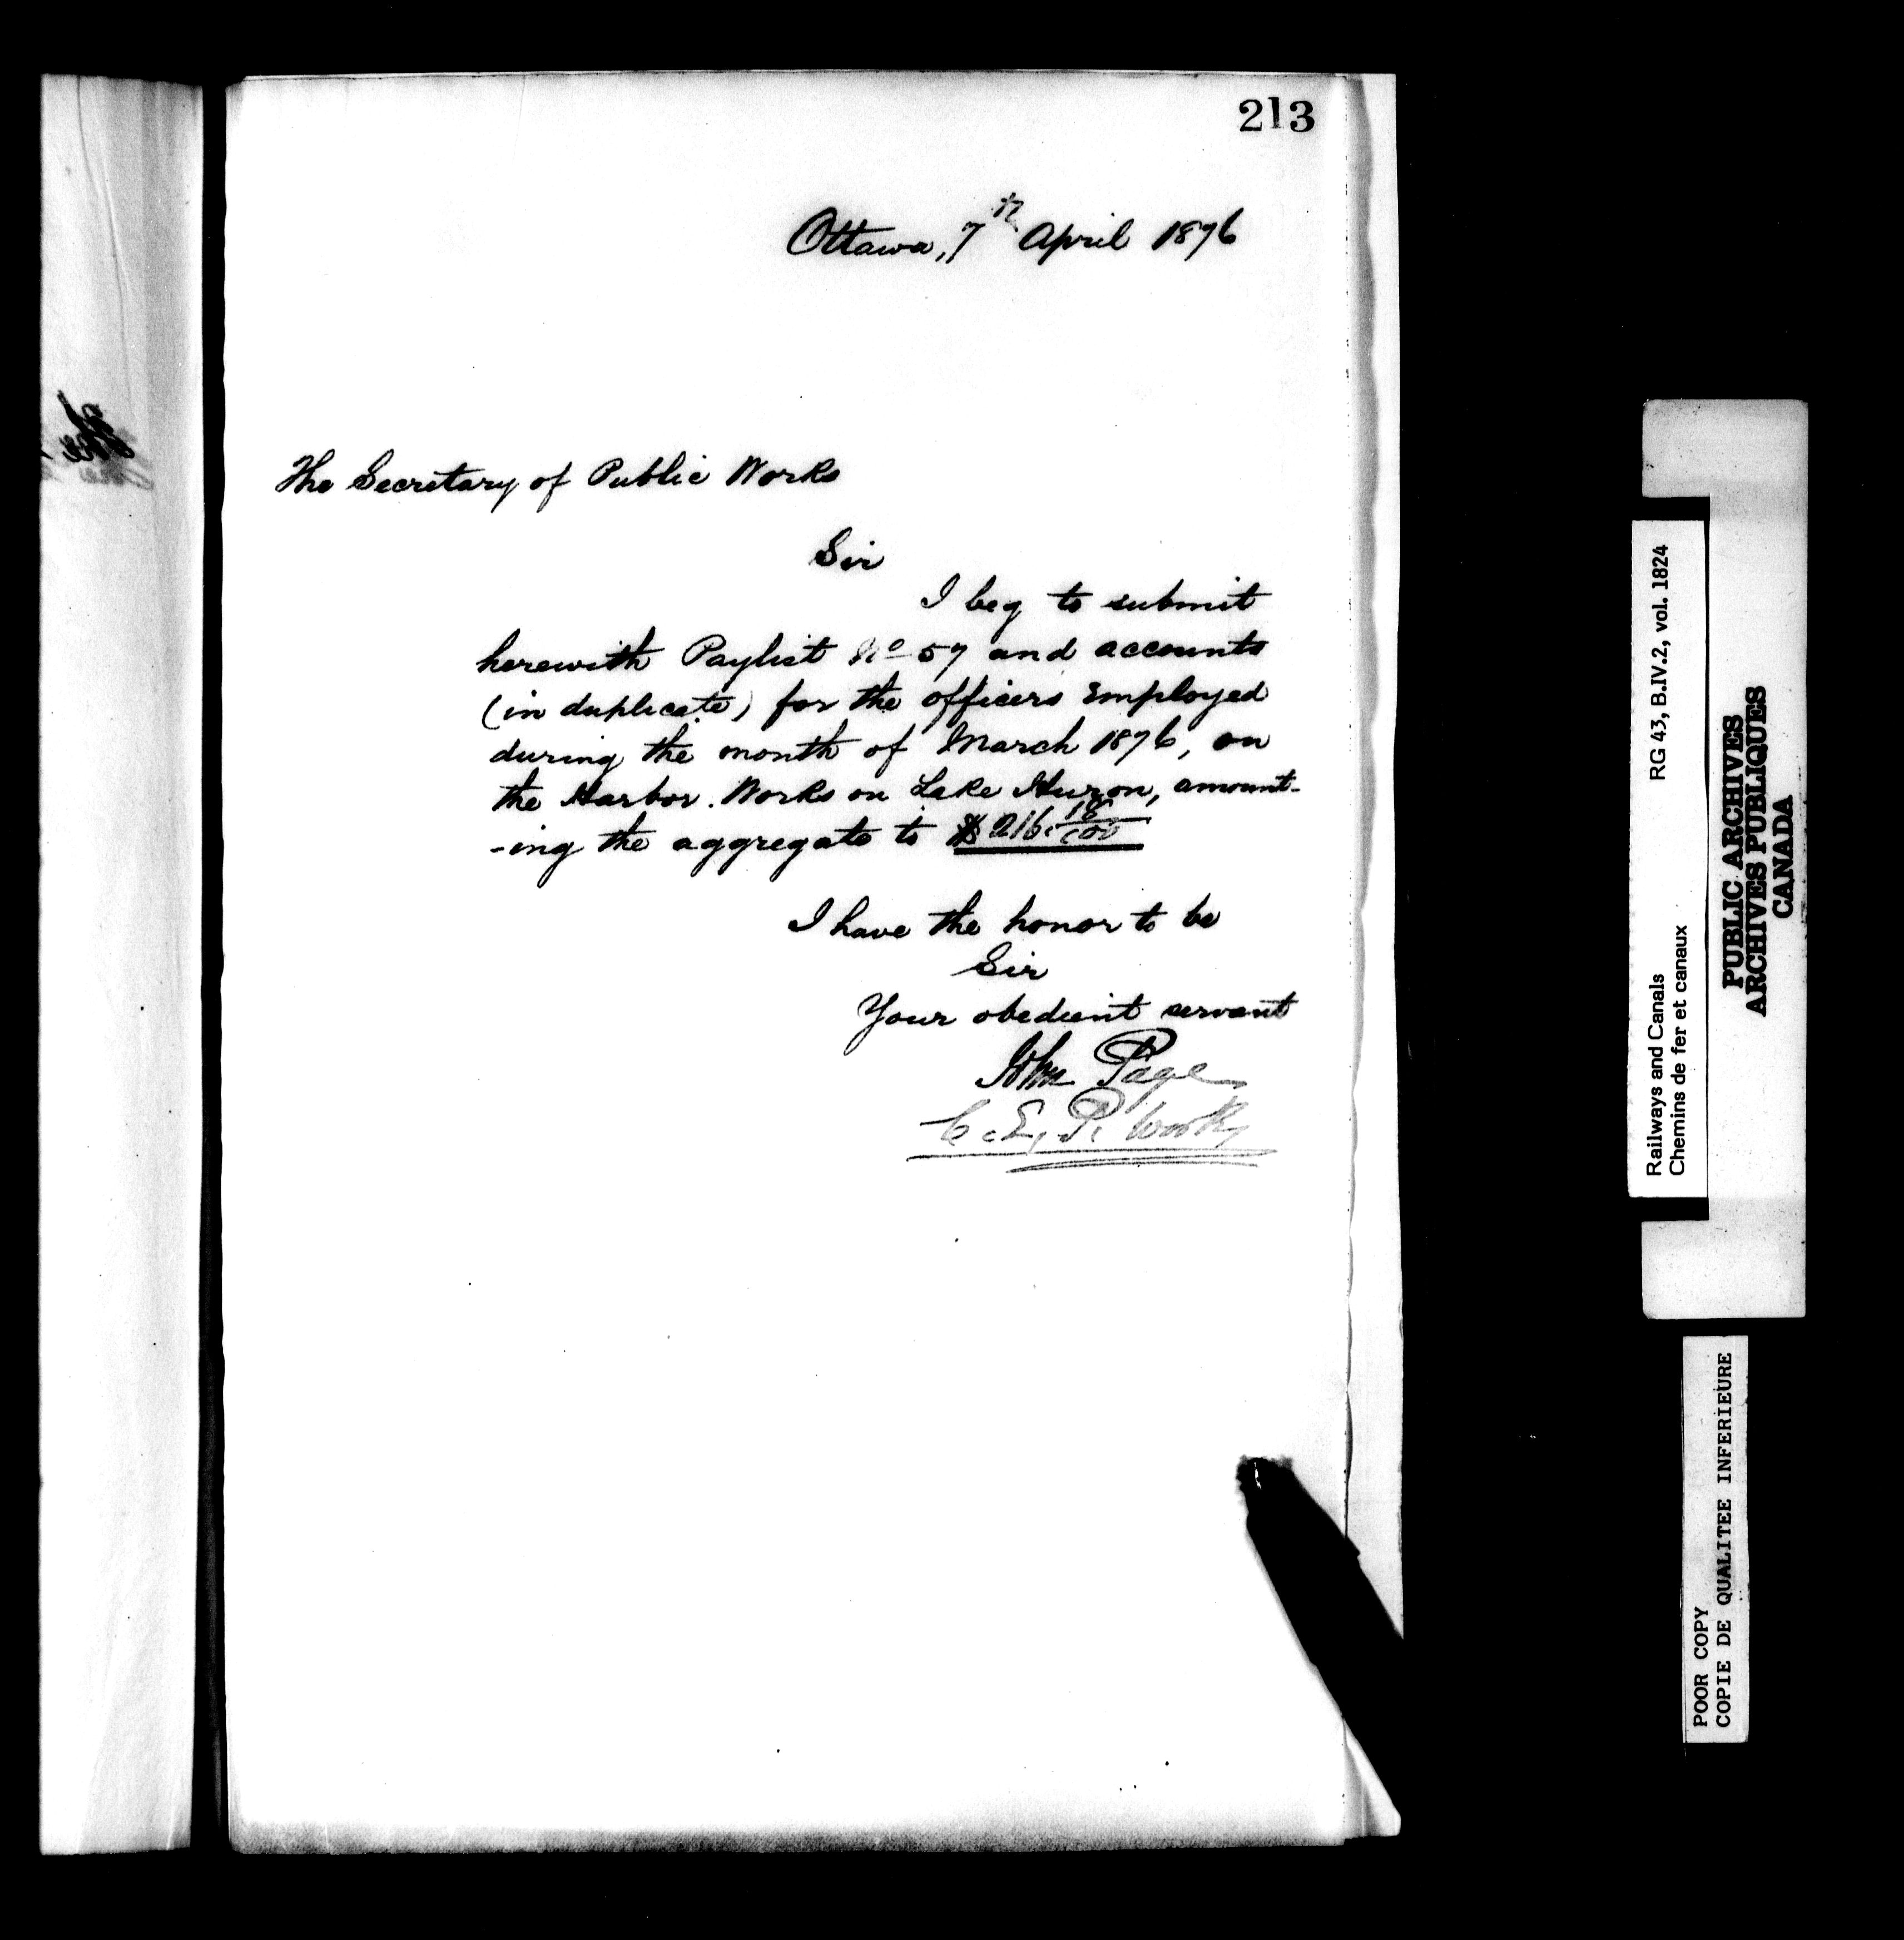 213
Ottawa, 7th April 1876
The Secretary of Public Works
Sir
I beg to submit
herewith Paylist No 57 and accounts
(in duplicate) for the officers Employed
during the month of March 1876, on
the Harbor Works on Lake Huron, amount-
-ing the aggregate to $216.18/100
I have the honor to be
Sir
Your obedient servant
John Page
C.E. P. Works
RG 43, B.IV.2, vol. 1824
Railways and Canals
Chemins de fer et canaux
PUBLIC ARCHIVES
ARCHIVES PUBLIQUES
CANADA
POOR COPY
COPIE DE QUALITEE INFERIEURE